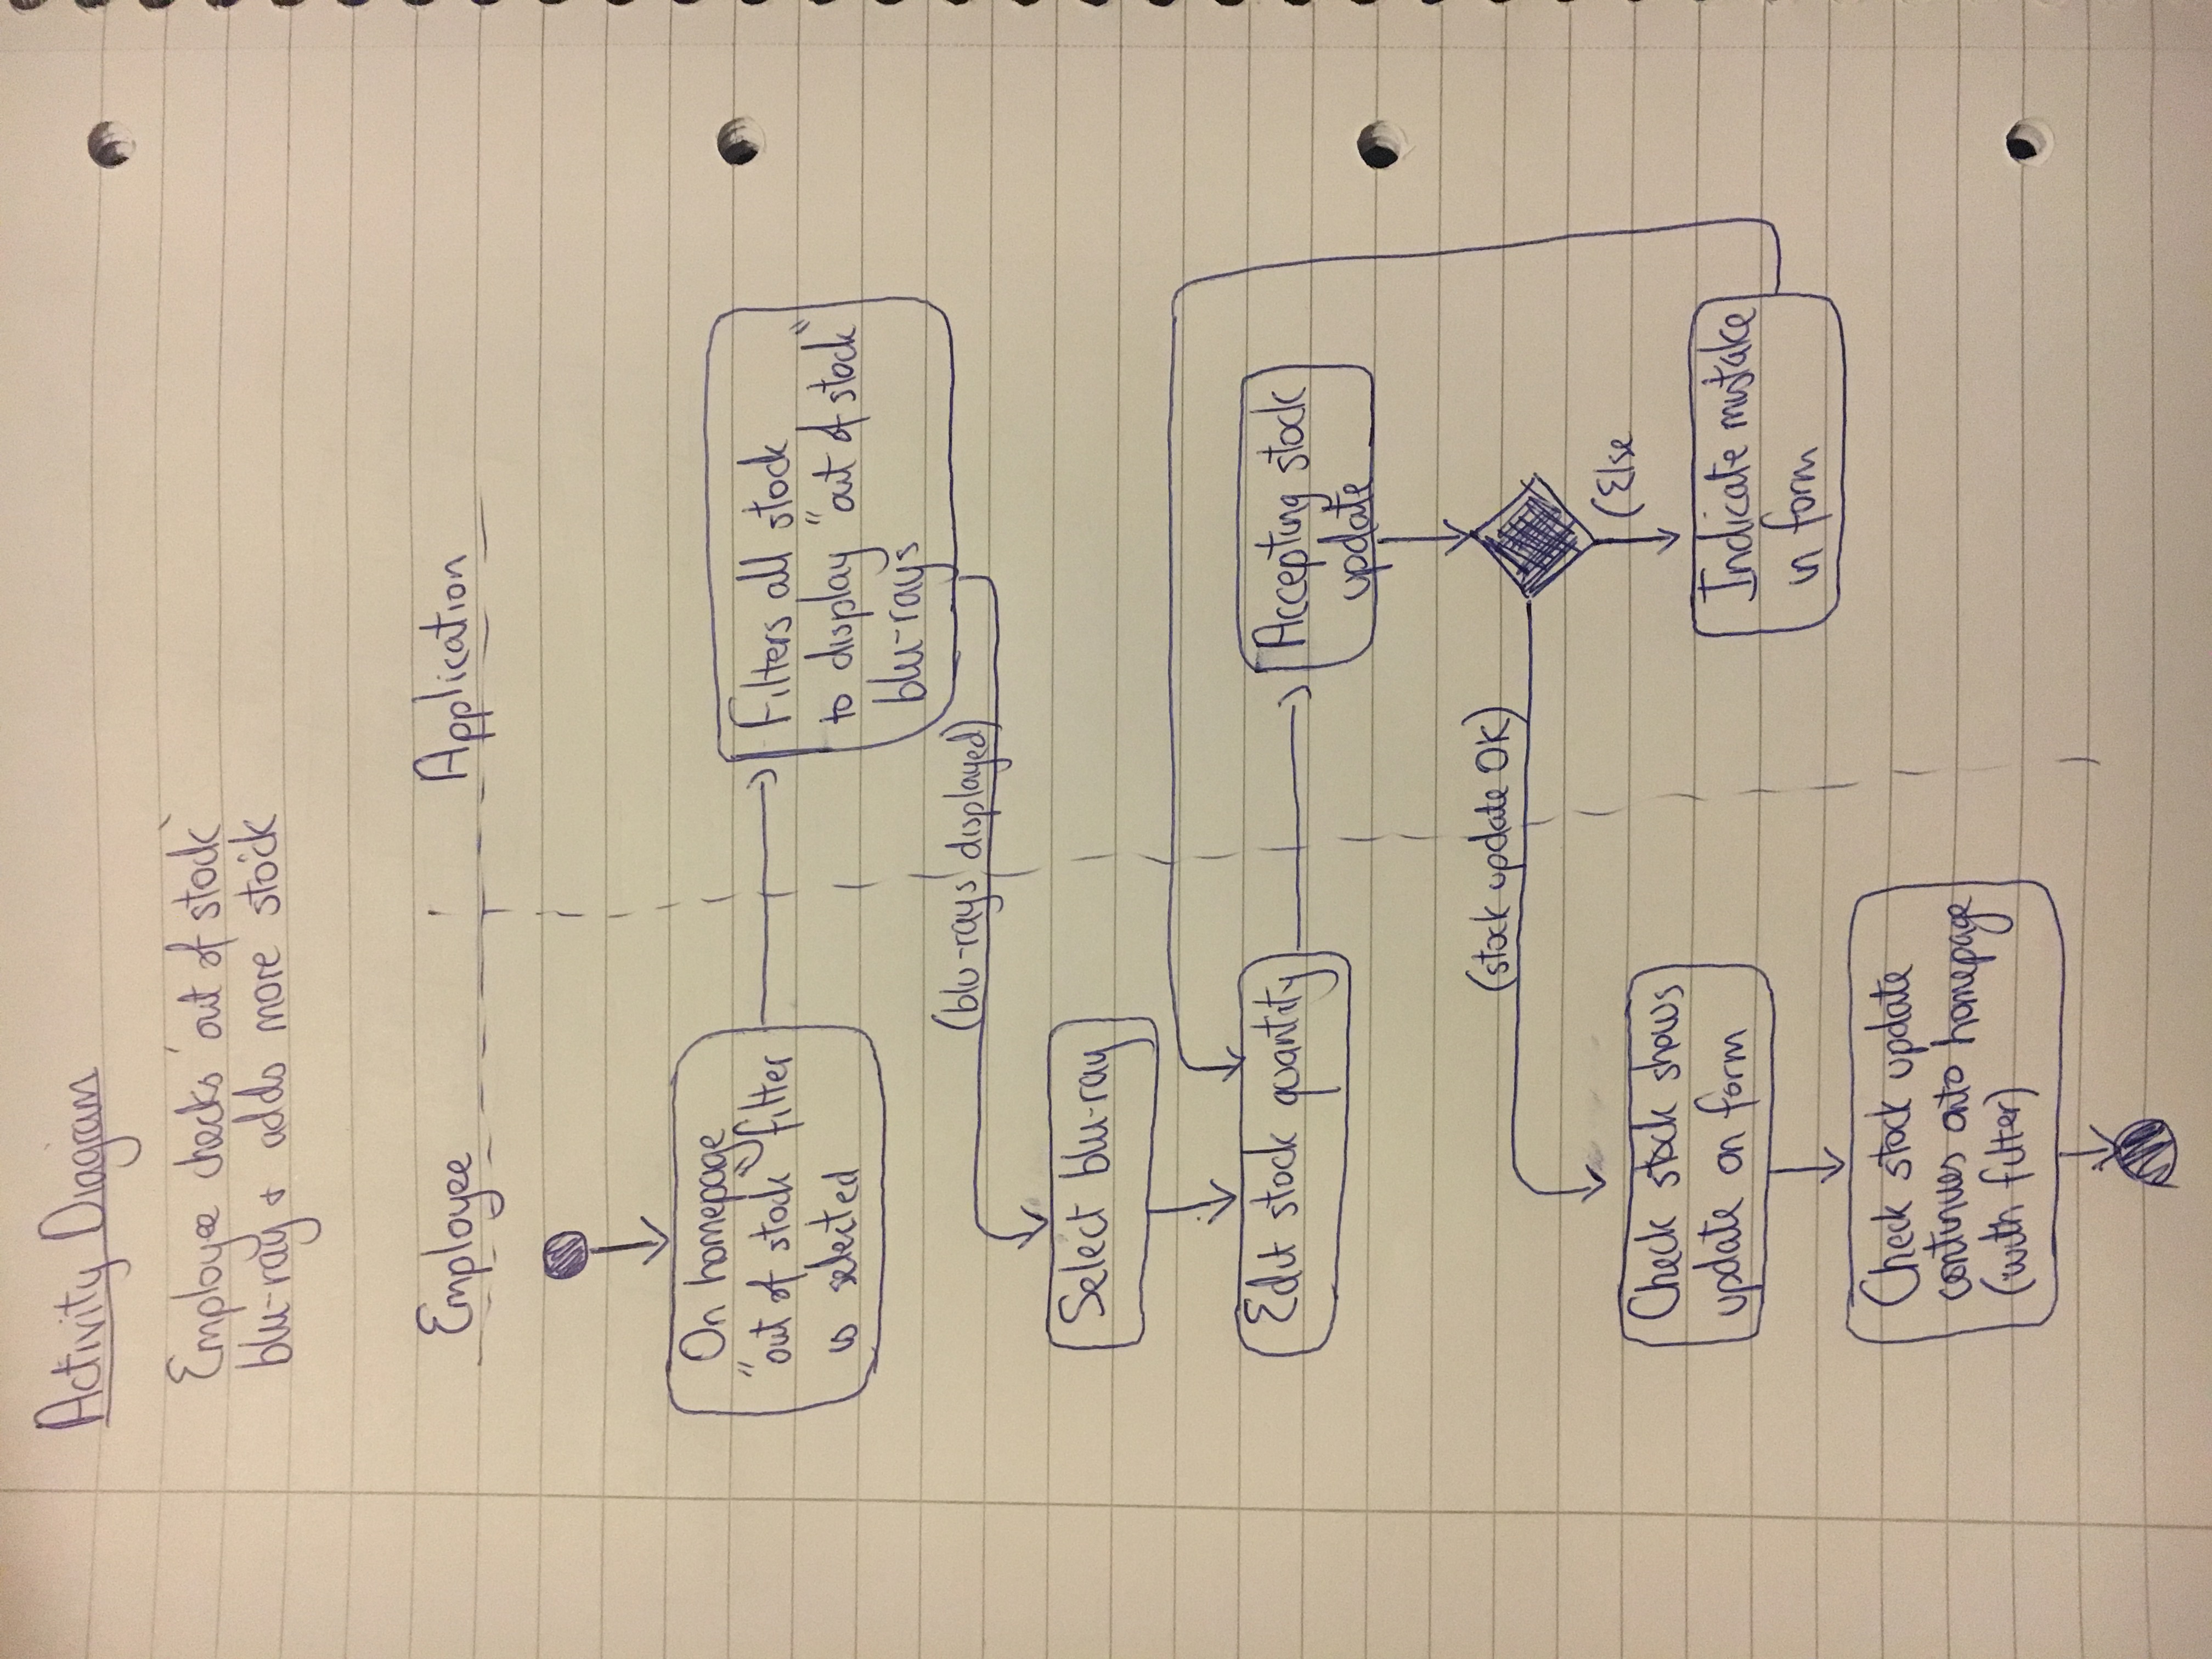 Activity Diagram
Employee checks 'out of stock'
blu-ray & adds more stock
Employee
Application
On homepage
"out of stock" filter
is selected
Filters all stock
to display "out of stock"
blu-rays
(blu-rays displayed)
Select blu-ray
Edit stock quantity
Accepting stock
update
(stock update OK)
(Else
Check stock shows
update on form
Indicate mistake
in form
Check stock update
continues onto homepage
(with filter)